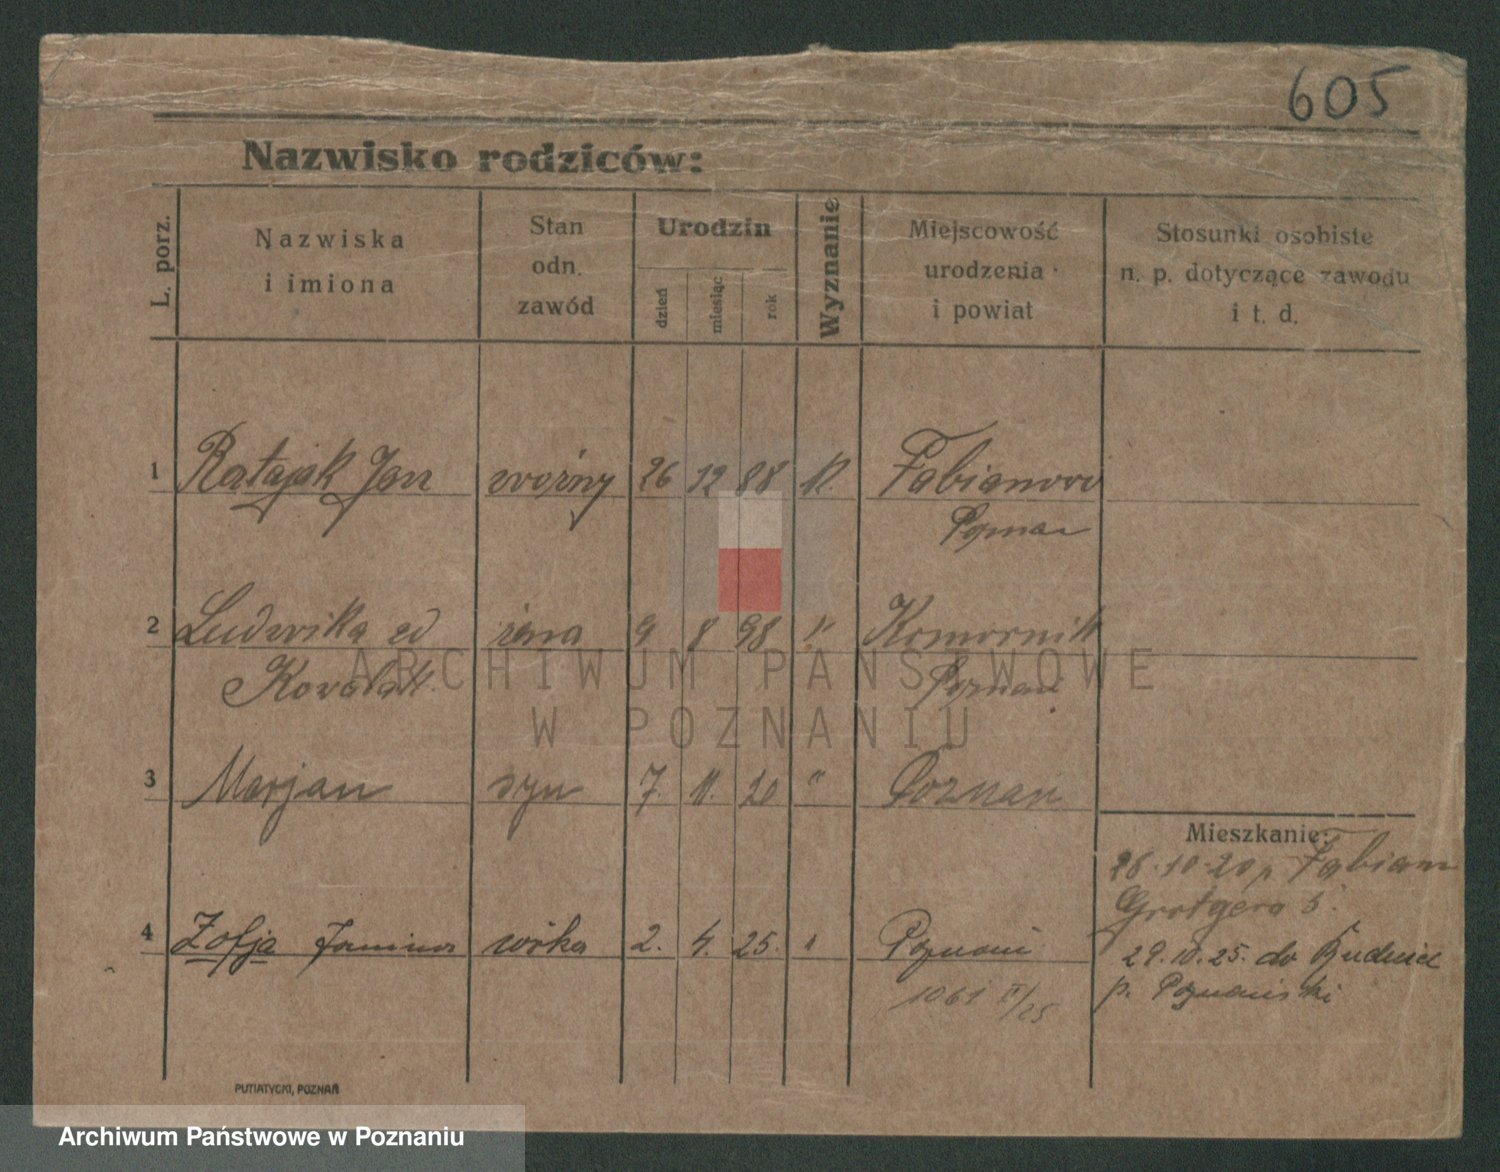 605
Nazwisko rodziców:
L. porz.
Nazwiska
i imiona
Stan
odn.
zawód
Urodzin
dzień
miesiąc
rok
Wyznanie
Miejscowość
urodzenia
i powiat
Stosunki osobiste
n. p. dotyczące zawodu
i t. d.
1 Ratajak Jan woźny 26 12 88 k Fabianowo
Poznań
2 Ludwika zd żona 9 8 98 " Komorniki
Poznań
3 Marjan syn 7. 11. 20 " Poznań
Mieszkanie:
26.10.20 p. Fabian
Grotgera 5.
4 Zofja Janina córka 2. 4. 25. " Poznań
29.10.25. do
p. Poznański
1061 II/25
PUTIATYCKI, POZNAŃ
ARCHIWUM PAŃSTWOWE
W POZNANIU
Archiwum Państwowe w Poznaniu